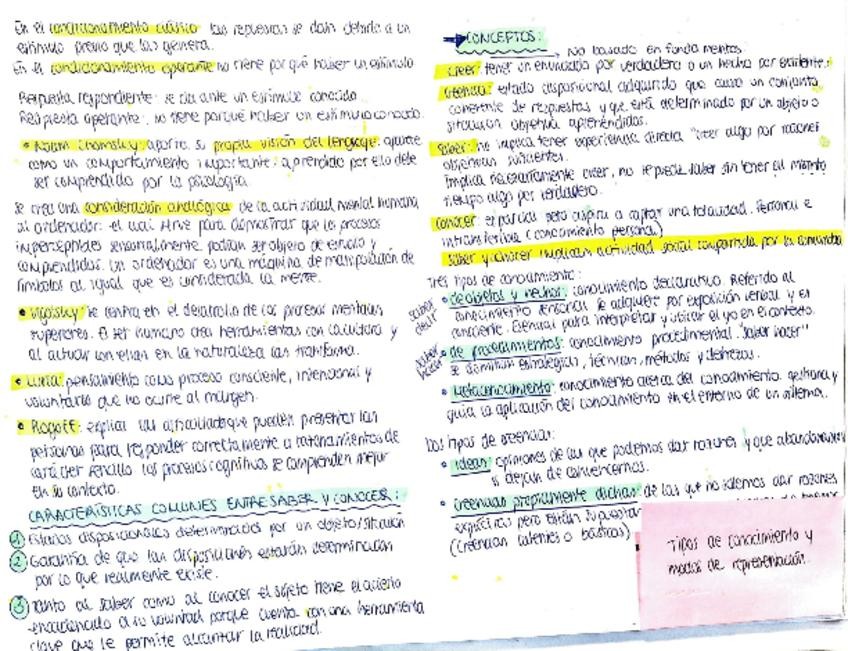 En el condicionamiento clásico las respuestas se dan debido a un
estímulo previo que las genera.
En el condicionamiento operante no tiene por qué haber un estímulo
Respuesta respondiente: se da ante un estímulo conocido
Respuesta operante: no tiene porqué haber un estímulo conocido.
• Noam Chomsky: aportó su propia visión del lenguaje
como un comportamiento importante: aprendido por ello debe
ser comprendido por la psicología.
Se crea una consideración analógica de la actividad mental humana
al ordenador: el cual sirve para demostrar que los procesos
imperceptibles sensorialmente podían ser objeto de estudio y
comprendidos. Un ordenador es una máquina de manipulación de
símbolos al igual que es considerada la mente.
• Vigotsky: se centra en el desarrollo de los procesos mentales
superiores. El ser humano crea herramientas con la cultura y
al actuar con ellas en la naturaleza las transforma.
• Luria: pensamiento como proceso consciente, intencional y
voluntario que no ocurre al margen.
• Rogoff: explica las dificultades que pueden presentar las
personas para responder correctamente a razonamientos de
carácter sencillo. Los procesos cognitivos se comprenden mejor
en su contexto.
CARACTERÍSTICAS COMUNES ENTRE SABER Y CONOCER:
① Estados disposicionales determinados por un objeto/situación
② Garantía de que las disposiciones estarán determinación
por lo que realmente existe.
③ Tanto al saber como al conocer el sujeto tiene el acierto
encadenado a su voluntad porque cuenta con una herramienta
clave que le permite alcanzar la realidad.
CONCEPTOS:
No basado en fundamentos.
Creer: tener un enunciado por verdadero o un hecho por existente.
Creencia: estado disposicional adquirido que causa un conjunto
coherente de respuestas y que está determinado por un objeto o
situación objetiva aprehendidos.
Saber: no implica tener experiencia directa "creer algo por razones
objetivas suficientes.
Implica necesariamente creer, no se puede saber sin tener al mismo
tiempo algo por verdadero.
Conocer: es parcial pero aspira a captar una totalidad. Personal e
intransferible (conocimiento personal)
Saber y conocer implican actividad social compartida por la comunidad
Tres tipos de conocimiento:
saber decir
• de objetos y hechos: conocimiento declarativo. Referido al
conocimiento sensorial se adquiere por exposición verbal y es
consciente. Esencial para interpretar y ubicar el yo en el contexto.
saber hacer
• de procedimientos: conocimiento procedimental. "Saber hacer"
se dominan estrategias, técnicas, métodos y destrezas.
• Metaconocimiento: conocimiento acerca del conocimiento. gestiona y
guía la aplicación del conocimiento en el entorno de un sistema.
Dos tipos de creencias:
• Ideas: opiniones de las que podemos dar razones y que abandonamos
si dejan de convencernos.
• Creencias propiamente dichas: de las que no solemos dar razones
explícitas pero están supuestas
(creencias latentes o básicas)
Tipos de conocimiento y
modos de representación.